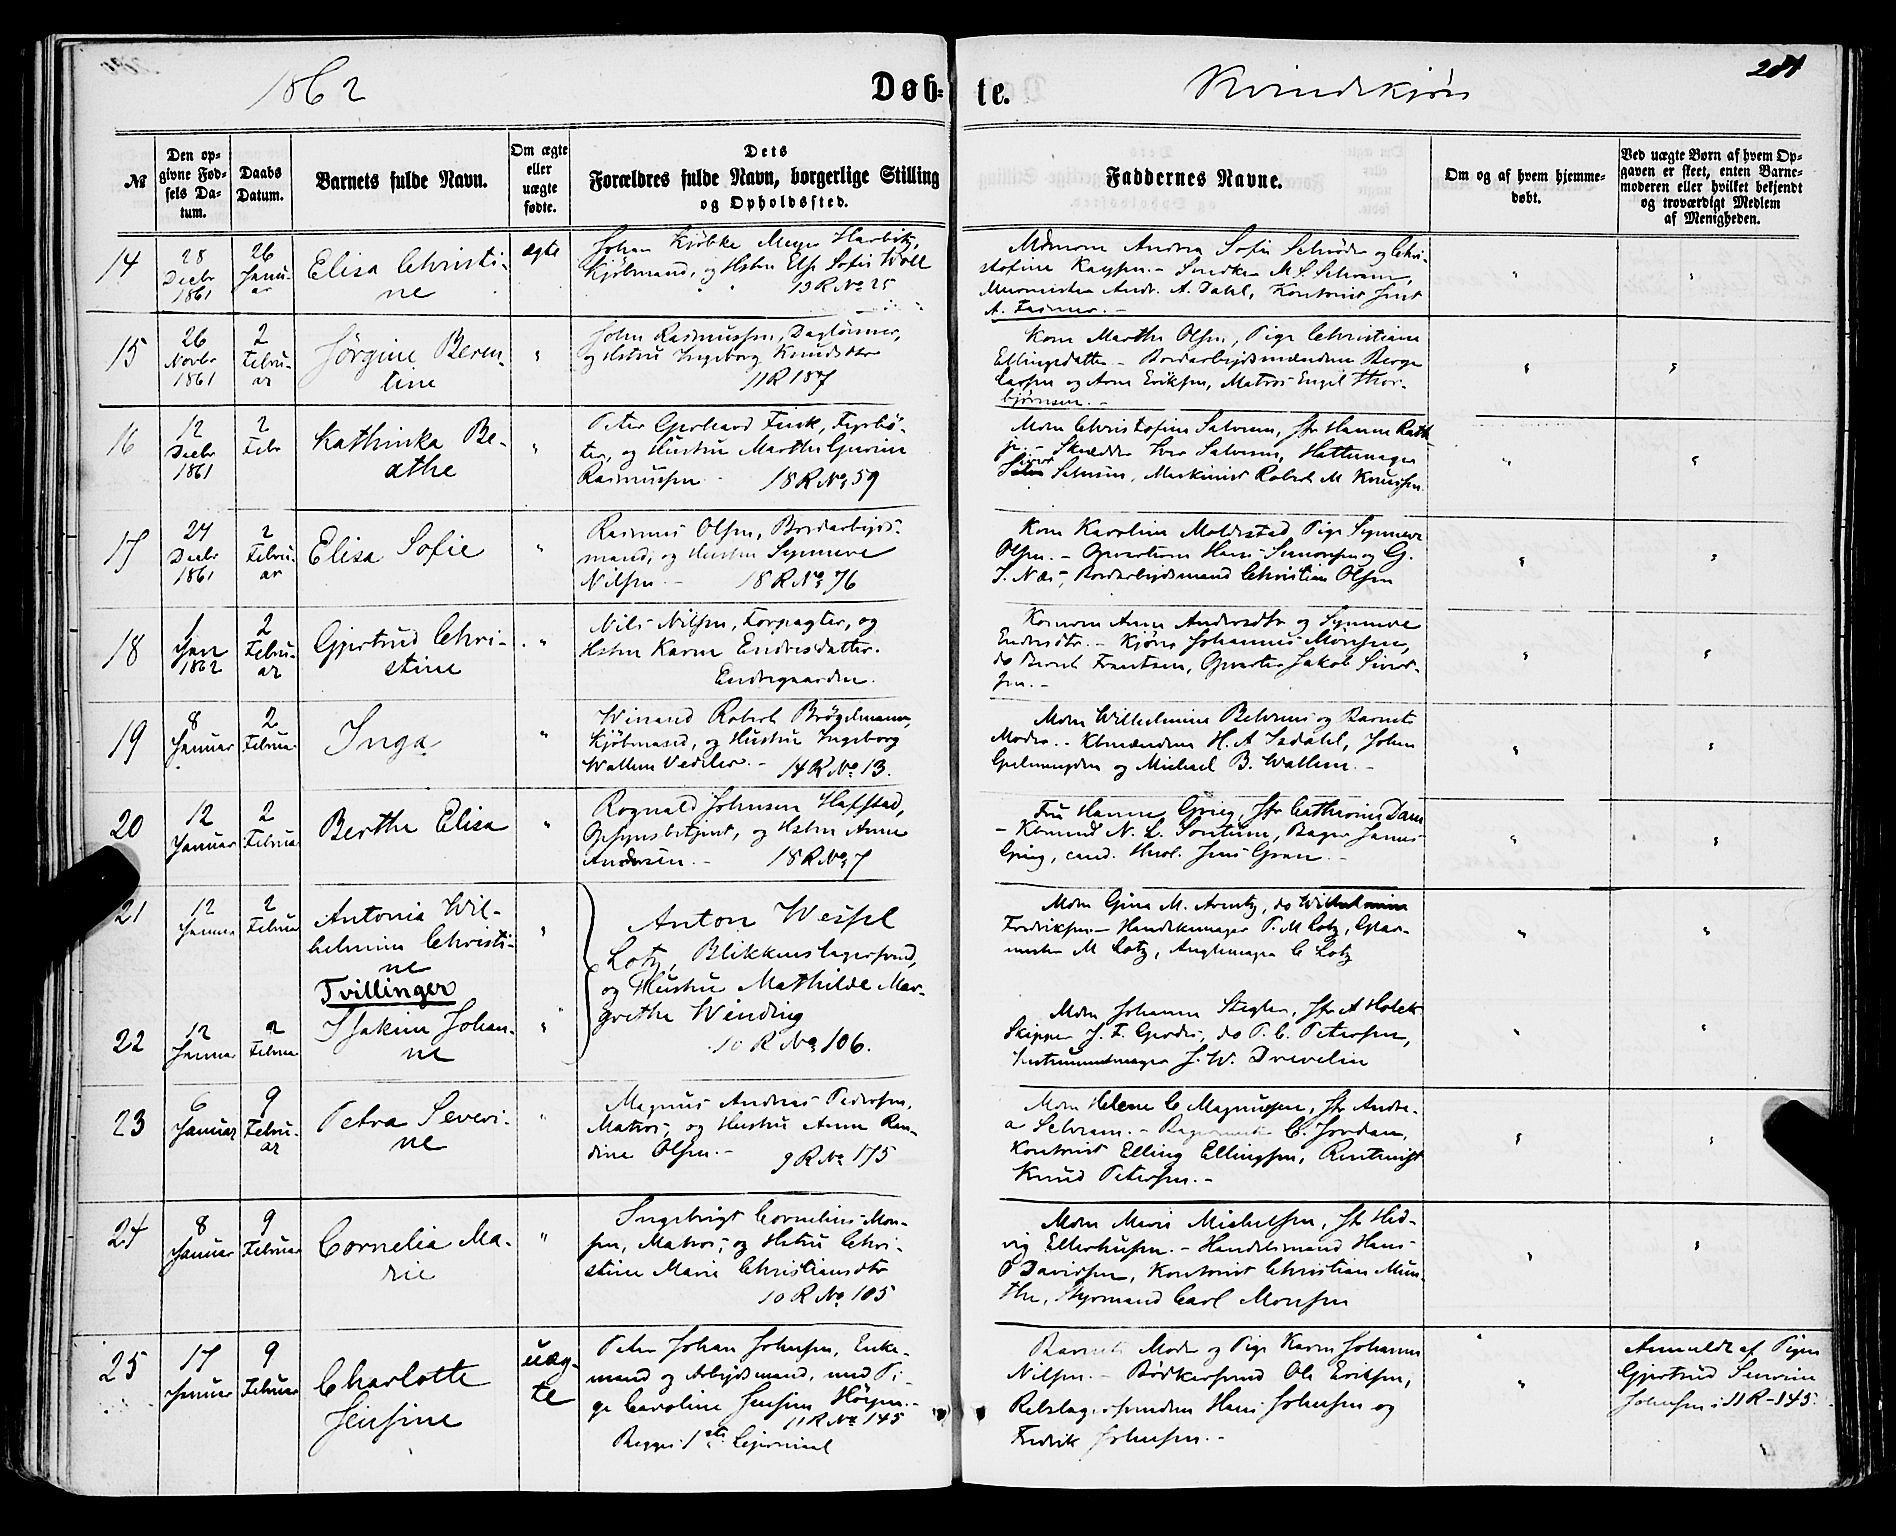 1862
Døb-
te.
Kvindekjøn
281
№
Den op-
givne Fød-
sels Da-
tum.
Daabs
Datum.
Barnets fulde Navn.
Om ægte
eller
uægte
fødte.
Dets
Forældres fulde Navn, borgerlige Stilling
og Opholdssted.
Faddernes Navne.
Om og af hvem hjemme-
døbt.
Ved uægte Børn af hvem Op-
gaven er skeet, enten Barne-
moderen eller hvilket bekjendt
og troværdigt Medlem
af Menigheden.
14
28
Decbr
1861
26
Janu-
ar
Elisa Christi-
ne
ægte
Johan Kjöbke Meyer Harbitz,
Kjöbmand, og Hstru Else Sofie Woll
13 R No 25
Andrea Sofie Schrøder og Chri-
stofine Kaysen.- M. S. Schram,
Muurmester Andr. A. Dahl, Kontorist
15
26
Novbr
1861
2
Febru-
ar
Jørgine Beren-
tine
"
John Rasmussen, Daglönner,
og Hstru Ingeborg Knudsdtr
11 R 187
Kone Marthe Olsen, Pige Christiane
Ellingsdatter - Bordarbeidsmændene Berge
Larsen og Arne Eriksen, Matros Engel Thor-
björnsen.-
16
12
Decbr
1861
2
Febr
Kathinka Be-
athe
"
Peter Gerhard Fink, Fyrbö-
ter, og Hustru Marthe Gurine
Rasmussen 18 R No 59
Mdm Christofine Salvesen, Jfr Hanne Rath-
je - Skrædder Iver Salvesen, Hattemager
Salvesen, Maskinist Robert M. Knudsen.
17
24
Decbr
1861
2
Febru-
ar
Elisa Sofie
"
Rasmus Olsen, Bordarbejds-
mand, og Hustru Synneve
Nilsen.- 18 R No 76
Kone Karoline Moldestad Pige Synneve
Olsen.- Hans Simonsen og G.
J. Næs, Bordarbejdsmand Christian Olsen
18
1
Jan
1862
2
Febru-
ar
Gjertrud Chri-
stine
"
Nils Nilsen, Forpagter, og
Hstru Karen Endresdatter.
Endregaarden.
Konerne Anna Andersdtr og Synneve
Endresdtr.- Johannes Monsen,
do Berent Frantsen, Jakob Siver-
sen.-
19
8
Januar
2
Februar
Inga
"
Winand Robert Brögelmann,
Kjöbmand, og Hustru Ingeborg
Wallem Vedeler.- 14 R No 13.
Mdm Wilhelmine Behrens og Barnets
Moder.- Kbmændene H. A. Isdahl, Johan
og Michael B. Wallem.-
20
12
Januar
2
Februar
Berthe Elisa
"
Rognald Johnsen Hafstad,
Opsynsbetjent, og Hstru Anne
Andersen.- 18 R No 7
Fru Hanne Grieg, Jfr Cathrine Dam
- Kbmnd N. L. Sontum, Bager James
Grieg, cand. Jens Gran.-
21
12
Januar
2
Februar
Antonia Wil-
helmine Christi-
ne
"
Anton Wessel
Lotz, Blikkenslagersvend,
og Hustru Mathilde Mar-
grethe Winding
10 R No 106.
Mdm Gina M. Arentz, do Wilhelmine
Fredriksen - Handskemager P. M. Lotz, Glar-
mester M Lotz, C Lotz
Tvillinger
22
12
Januar
2
Februar
Joakine Johan-
ne
"
Mdm Johanne Stegler, Jfr A Holck
Skipper J. F. Gerdes, do P. C. Petersen,
Instrumentmager J. W. Drevelin
23
6
Januar
9
Febru-
ar
Petra Severi-
ne
"
Magnus Andreas Pedersen,
Matros, og Hustru Anne Ran-
dine Olsen.-
9 R No 175
Mdm Helene C Magnussen, Jfr Andre-
a Schram.- C. Jordan,
Kontorist Elling Ellingsen,
Knud Petersen.-
24
8
Januar
9
Februar
Cornelia Ma-
rie
"
Ingebrigt Cornelius Mon-
sen, Matros, og Hstru Chri-
stine Marie Christiansdtr
10 R No 105
Mdm Marie Michelsen, Jfr Hed-
vig Ellerhusen.- Handelsmand Hans
O Davidsen, Kontorist Christian Mün-
the, Styrmand Carl Monsen
25
17
Januar
9
Februar
Charlotte
Jensine
uæg-
te
Peter Johan Johnsen, Enke-
mand og Arbejdsmand, med Pi-
ge Caroline Jensine
11 R No 145
Begges 1ste Lejermaal
Barnets Moder og Pige Karen Johanne
Nilsen.- Bødkersvend Ole Eriksen,
Rebslagersvendene Hans Johnsen og
Fredrik Johnsen.-
Anmeldt af Pigen
Gjertrud Severine
Johnsen i 11 R - 145.